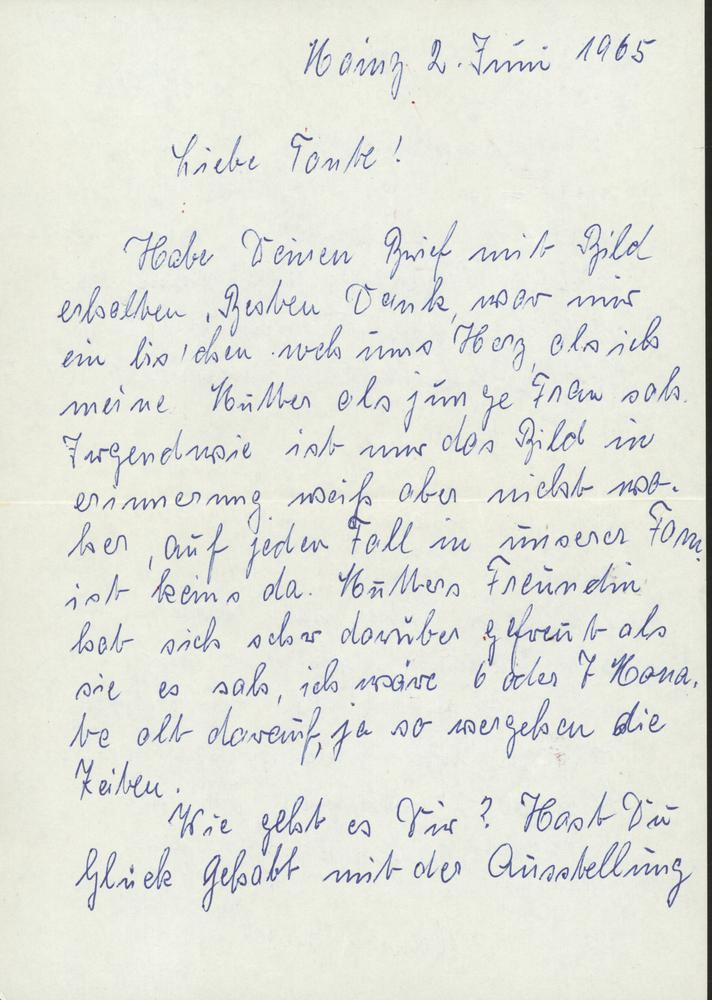 Mainz 2. Juni 1965
Liebe Tante!
Habe Deinen Brief mit Bild
erhalten, Besten Dank, war mir
ein bis'chen weh ums Herz, als ich
meine Mutter als junge Frau sah.
Irgendwie ist mir das Bild in
erinnerung weiß aber nicht wo-
her, auf jeden Fall in unserer Fam.
ist keins da. Mutters Freundin
hat sich sehr darüber gefreut als
sie es sah, ich wäre 6 oder 7 Mona-
te alt darauf, ja so vergehen die
Zeiten.
Wie geht es Dir? Hast Du
Glück gehabt mit der Ausstellung